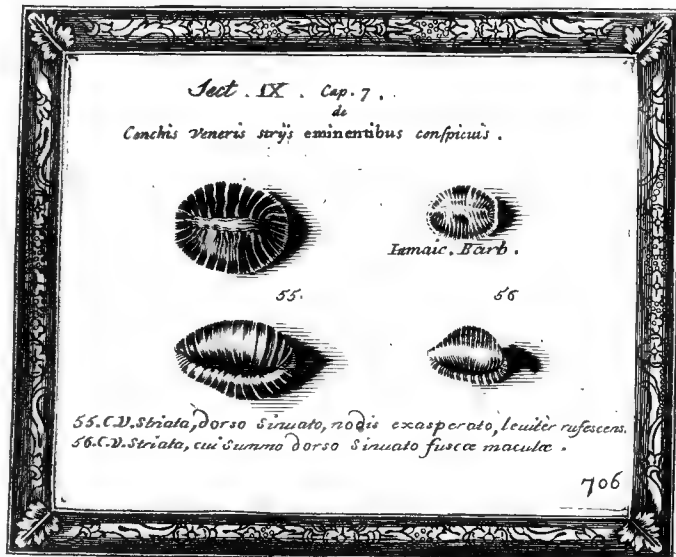 Sect. IX. Cap. 7.
de
Conchis Veneris strijs eminentibus conspicuis.
Iamaic. Barb.
55.
56
55. C.V. Striata, dorso Sinuato, nodis exasperato, leuitèr rufescens.
56. C.V. Striata, cui Summo dorso Sinuato fuscæ maculæ.
706